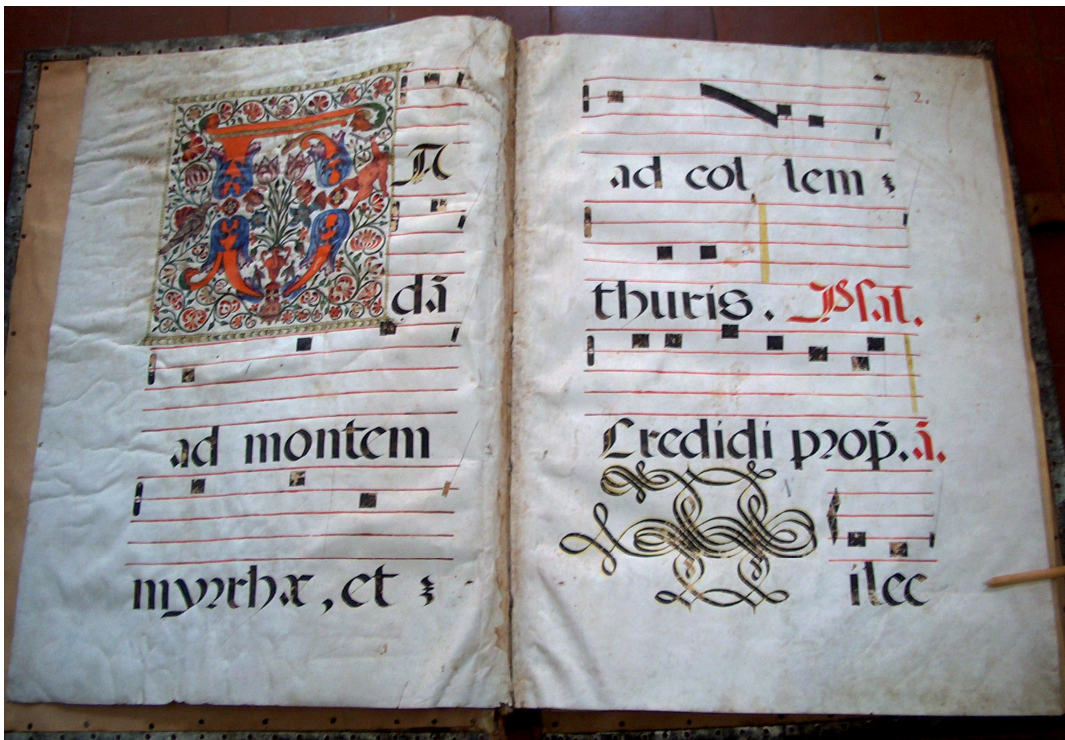 VA
dā
ad montem
myrrhæ, et
2.
ad col lem
thuris. Psal.
Credidi prop̄. ā.
Dilec